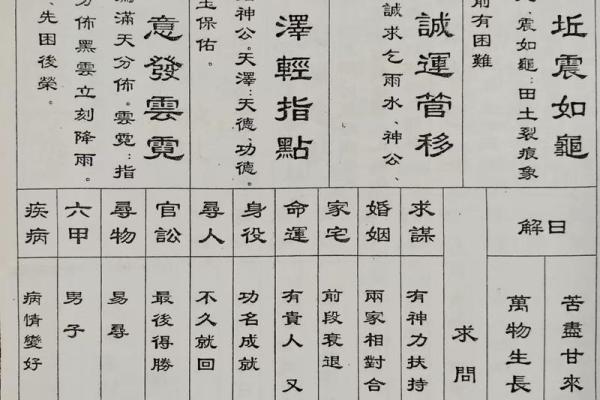 坵震如龜
、震如龜：田土裂痕象
前有困難
誠運管移
誠求乞雨水、神公、
澤輕指點
神公。天澤：天德、功德。
玉保佑。
意發雲霓
滿天分佈。雲霓：指
分佈黑雲立刻降雨。
、先困後榮。
日解
苦盡甘來
萬物生長
求問
求謀
有神力扶持
婚姻
兩家相對合
家宅
前段衰退
命運
有貴人 又
身役
功名成就
尋人
不久就回
官訟
最後得勝
尋物
易尋
六甲
男子
疾病
病情變好